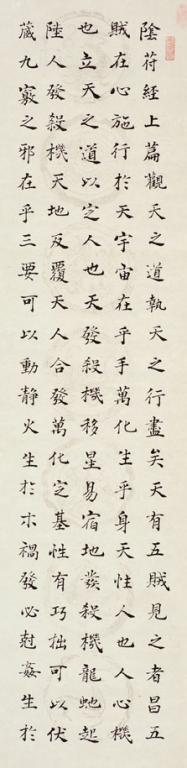 陰符經上篇觀天之道執天之行盡矣天有五賊見之者昌五
賊在心施行於天宇宙在乎手萬化生乎身天性人也人心機
也立天之道以定人也天發殺機移星易宿地發殺機龍虵起
陸人發殺機天地反覆天人合發萬化定基性有巧拙可以伏
藏九竅之邪在乎三要可以動靜火生於木禍發必尅姦生於